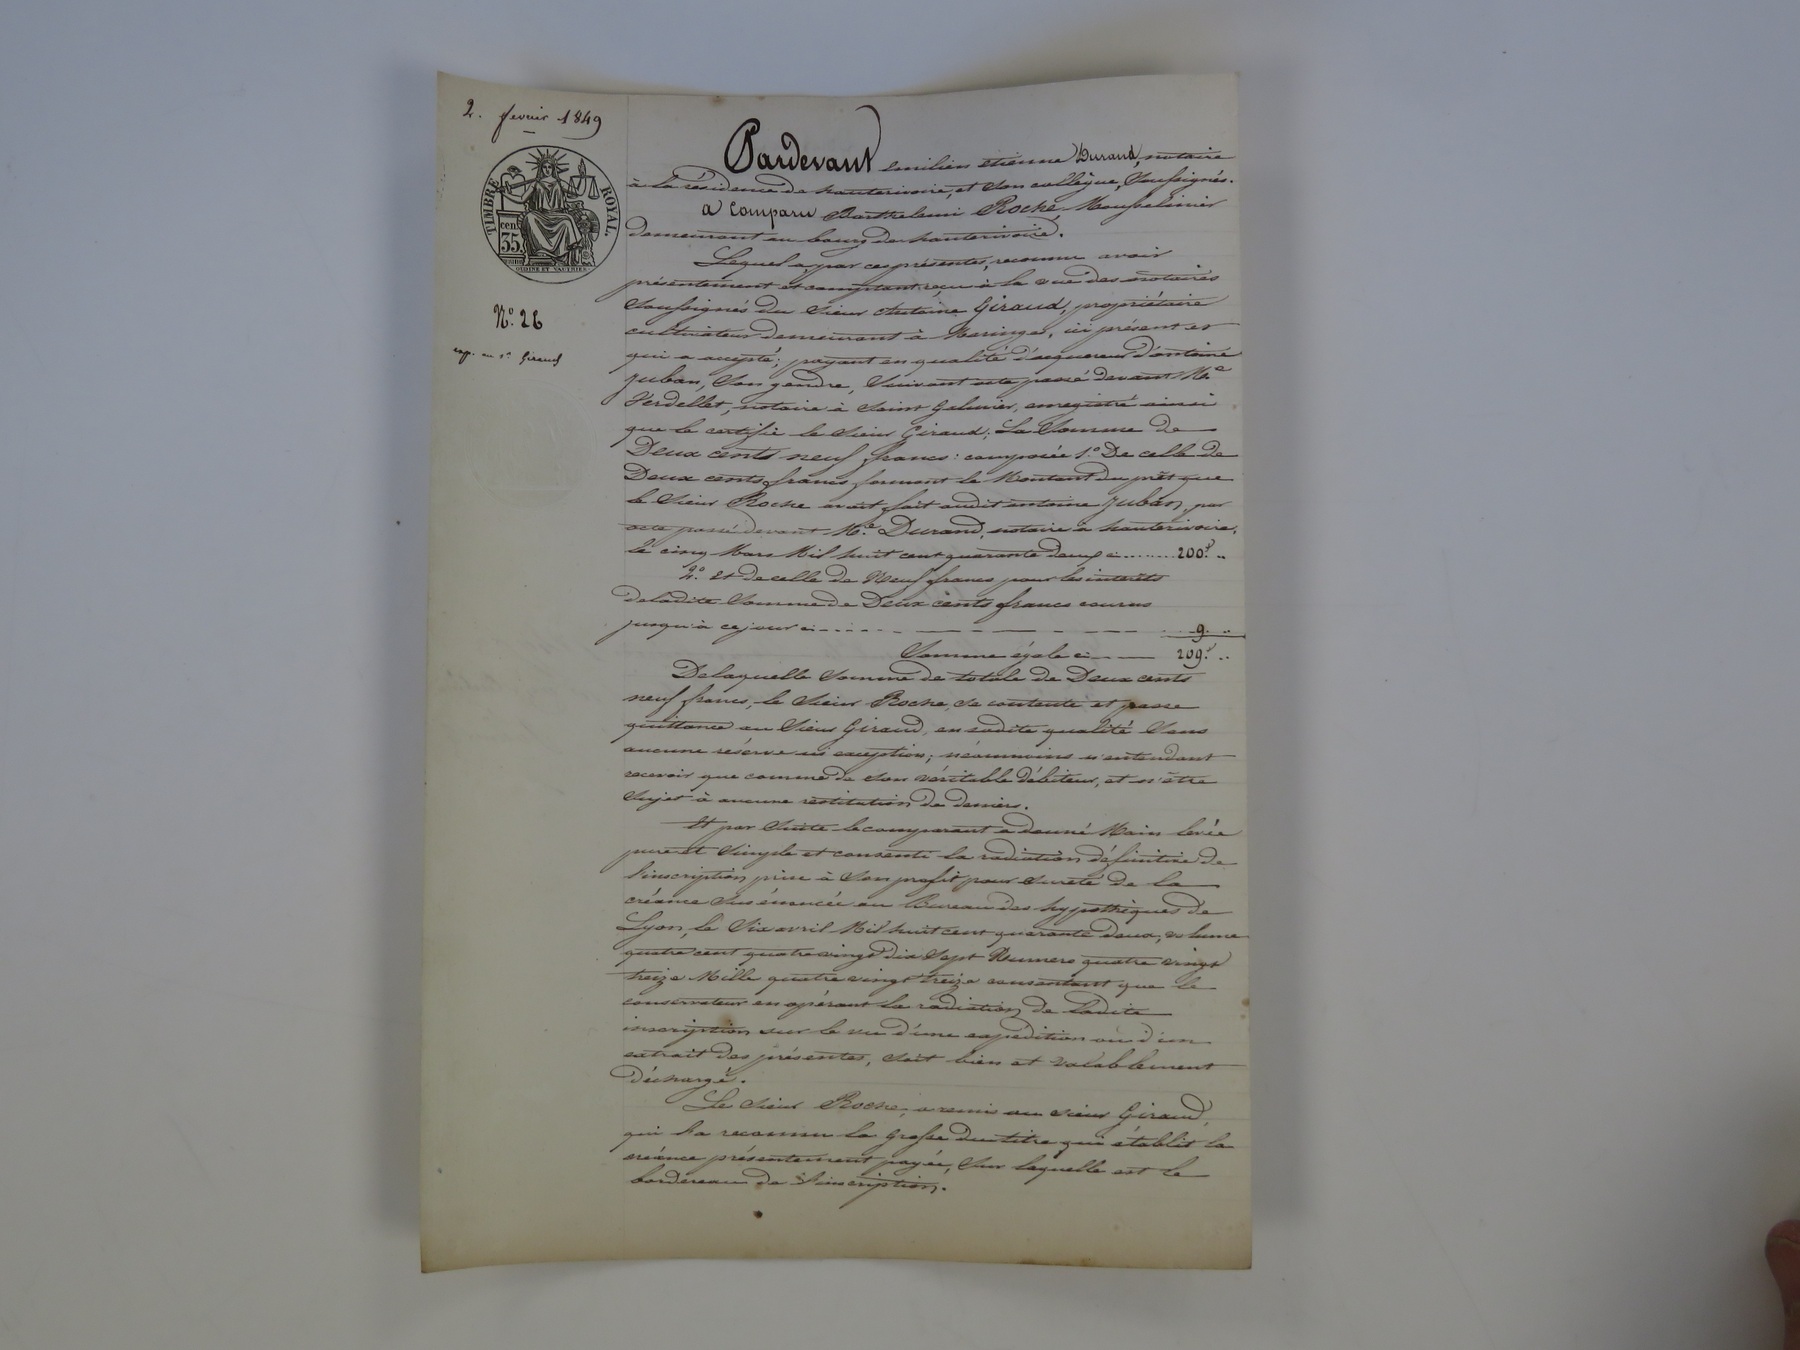 2. fevrier 1849
TIMBRE ROYAL.
cent.
35
N.o 26
exp. au sr. Giraud
Pardevant Emilien étienne Durand, notaire
à la résidence de hauterivoire, et son collègue, Soussignés.
a Comparu Barthelemi Roche, Mousselinier
demeurant au bourg de hauterivoire.
Lequel a, par ces présentes, reconnu avoir
présentement et comptant reçu à la vue des notaires
Soussignés du Sieur Antoine Giraud, propriétaire
cultivateur demeurant à Maringes, ici présent et
qui a accepté; payant en qualité d'acquereur d'antoine
Juban, Son gendre, Suivant acte passé devant Me.
Verdellet, notaire à Saint Galmier, enregistré ainsi
que le certifie le Sieur Giraud; La Somme de
Deux cents neuf francs: composée 1.o De celle de
Deux cents francs formant le Montant du prêt que
le Sieur Roche avait fait audit antoine Juban, par
acte passé devant Me. Durand, notaire a hauterivoire,
le cinq Mars Mil huit cent quarante deux ci ........ 200.f ..
2.o Et de celle de Neuf francs pour les intérêts
de ladite Somme de Deux cents francs courus
jusqu'à ce jour ci ........ 9. ..
Somme égale ci — — 209.f ..
De laquelle Somme de totale de Deux cents
neuf francs, le Sieur Roche, se contente et passe
quittance au Sieur Giraud, en sadite qualité Sans
aucune réserve ni exception; néanmoins n'entendant
recevoir que comme de son véritable débiteur, et n'être
Sujet à aucune restitution de deniers.
Et par Suite le comparant a donné Main levée
pure et Simple et consenti la radiation définitive de
l'inscription prise à Son profit pour Sureté de la
créance Susénoncée au Bureau des hypothèques de
Lyon, le Six avril Mil huit cent quarante deux, volume
quatre cent quatre vingt dix Sept Numero quatre vingt
treize Mille quatre vingt treize consentant que le
conservateur en opérant la radiation de Ladite
inscription sur le vu d'une expedition ou d'un
extrait des présentes, soit bien et valablement
déchargé.
Le sieur Roche, a remis au sieur Giraud,
qui l'a reconnu la grosse du titre qui établit la
créance présentement payée, Sur laquelle est le
bordereau de l'inscription.